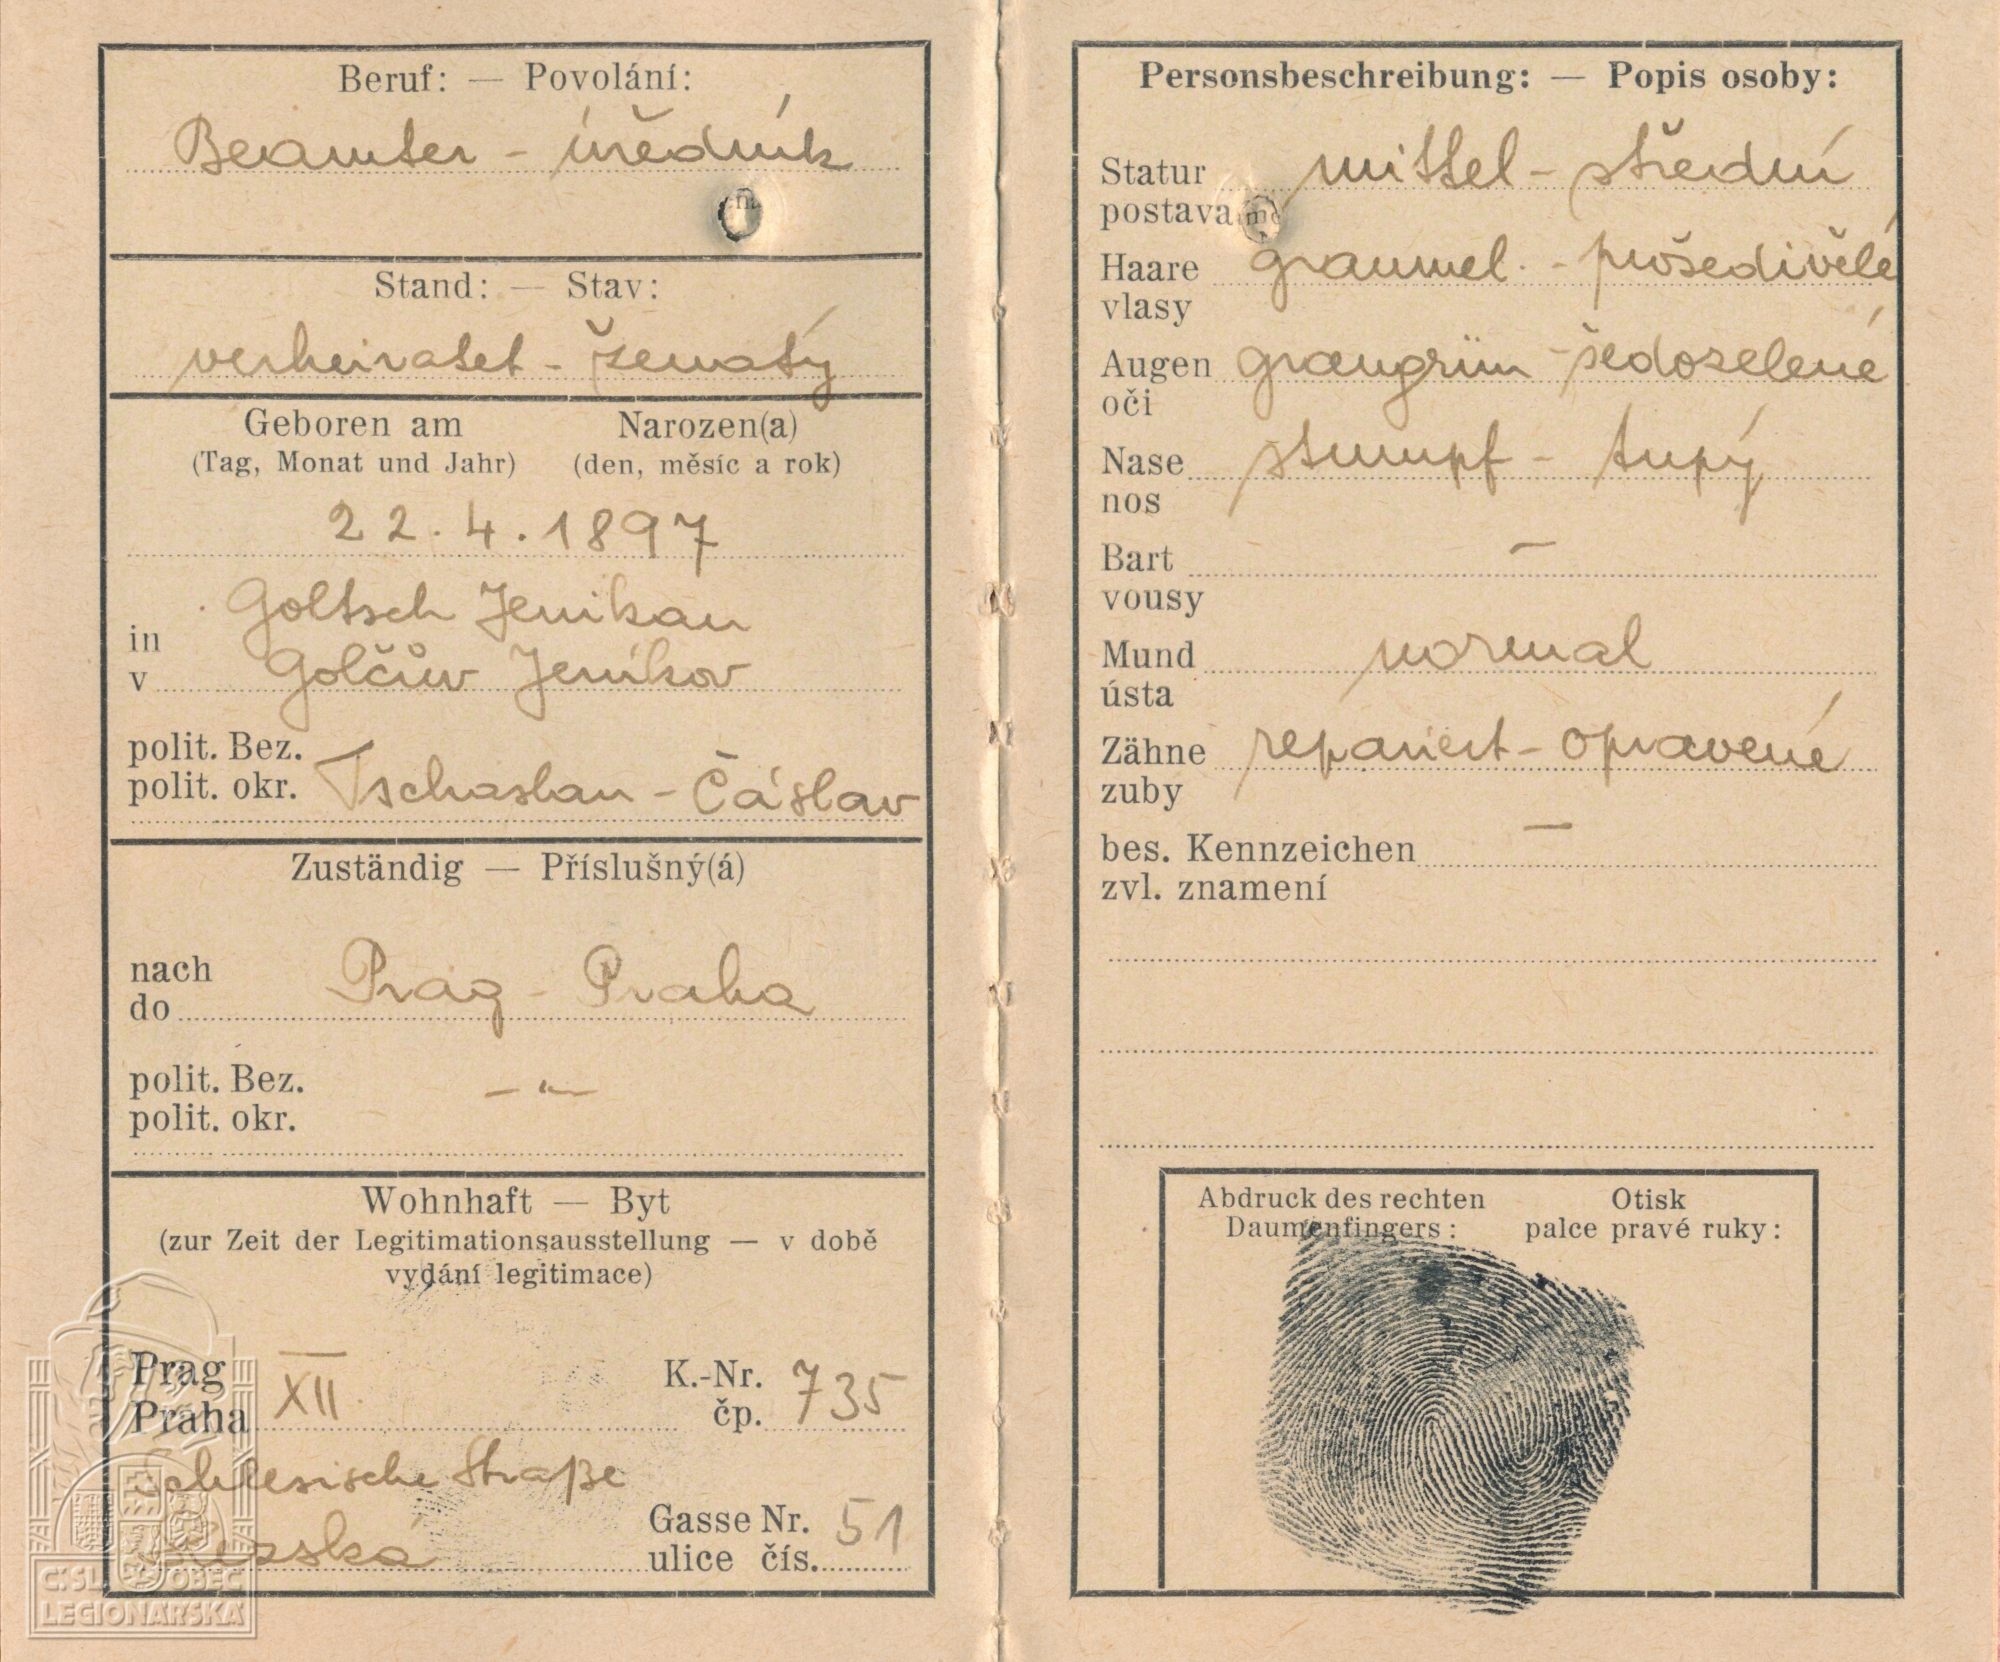 Beruf: — Povolání:
Beamter - úředník
Stand: — Stav:
verheiratet - ženatý
Geboren am Narozen(a)
(Tag, Monat und Jahr) (den, měsíc a rok)
22. 4. 1897
Goltsch Jenikau
in
v Golčův Jeníkov
polit. Bez.
polit. okr. Tschaslau - Čáslav
Zuständig — Příslušný(á)
nach
do Prag - Praha
polit. Bez. — " —
polit. okr.
Wohnhaft — Byt
(zur Zeit der Legitimationsausstellung — v době
vydání legitimace)
Prag XII K.-Nr. 735
Praha čp.
Schlesische Straße
Gasse Nr. 51
Slezská ulice čís.
ČSL. OBEC
LEGIONÁŘSKÁ
Personsbeschreibung: — Popis osoby:
Statur mittel - střední
postava
Haare graumel. - prošedivělé
vlasy
Augen graugrün - šedozelené
oči
Nase stumpf - tupý
nos
Bart —
vousy
Mund normal
ústa
Zähne repariert - opravené
zuby
bes. Kennzeichen —
zvl. znamení
Abdruck des rechten Otisk
Daumenfingers: palce pravé ruky: